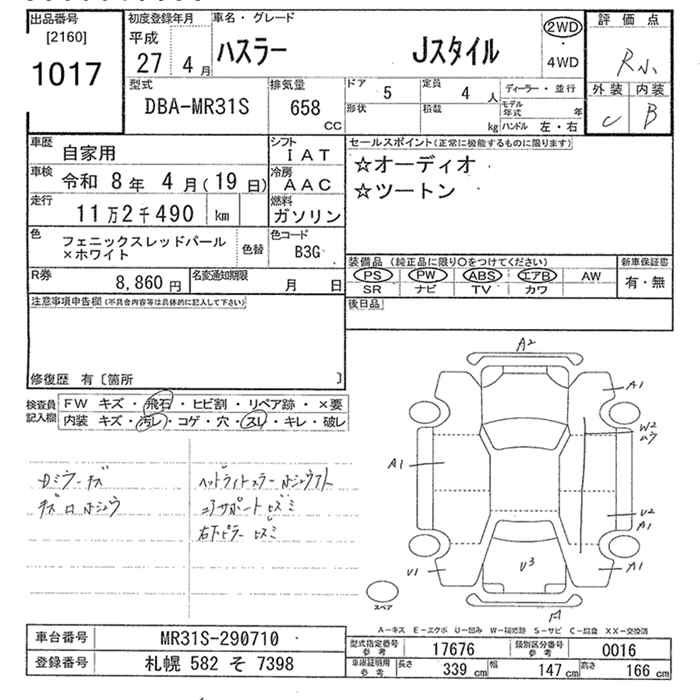 出品番号 初度登録年月 車名・グレード 評価点
[2160] 平成 2WD
1017 27 4月 ハスラー Jスタイル ・ R小
4WD
型式 排気量 ドア 5 定員 4人 ディーラー・並行 外装 内装
DBA-MR31S 658 CC 形状 積載 kg モデル年式 年 C B
ハンドル 左・右
車歴 自家用 シフト IAT セールスポイント(正常に機能するものに限ります)
車検 令和 8年 4月(19日) 冷房 AAC ☆オーディオ
走行 11万2千490 km 燃料 ガソリン ☆ツートン
色 フェニックスレッドパール 色替 色コード
×ホワイト B3G
装備品 (純正品に限り○をつけてください) 新車保証書
R券 8,860円 名変通知期限 月 日 PS PW ABS エアB AW 有・無
SR ナビ TV カワ
注意事項申告欄(不具合内容等は具体的に記入して下さい) 後日品
修復歴 有〔箇所 〕
検査員 FW キズ・飛石・ヒビ割・リペア跡・×要
記入欄 内装 キズ・汚レ・コゲ・穴・スレ・キレ・破レ
A2
A1
W2
A1
U2
A1
U3
U1
A1
スペア
A
A-キズ E-エクボ U-凹み W-補修跡 S-サビ C-腐食 XX-交換済
車台番号 MR31S-290710 型式指定番号 参考 17676 類別区分番号 参考 0016
登録番号 札幌 582 そ 7398 車庫証明用 参考 長さ 339cm 幅 147cm 高さ 166cm